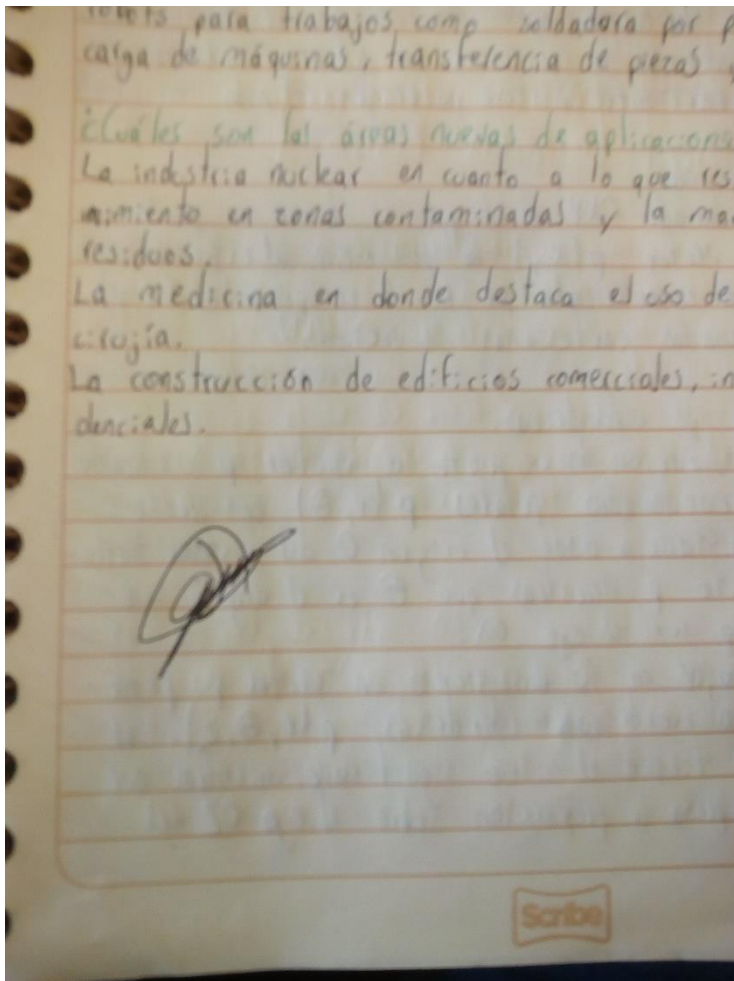 robots para trabajos como soldadura por
carga de máquinas, transferencia de piezas
¿Cuáles son las áreas nuevas de aplicacions
La industria nuclear en cuanto a lo que res
nimiento en zonas contaminadas y la ma
residuos.
La medicina en donde destaca el uso de
cirujía.
La construcción de edificios comerciales, in
denciales.
Scribe